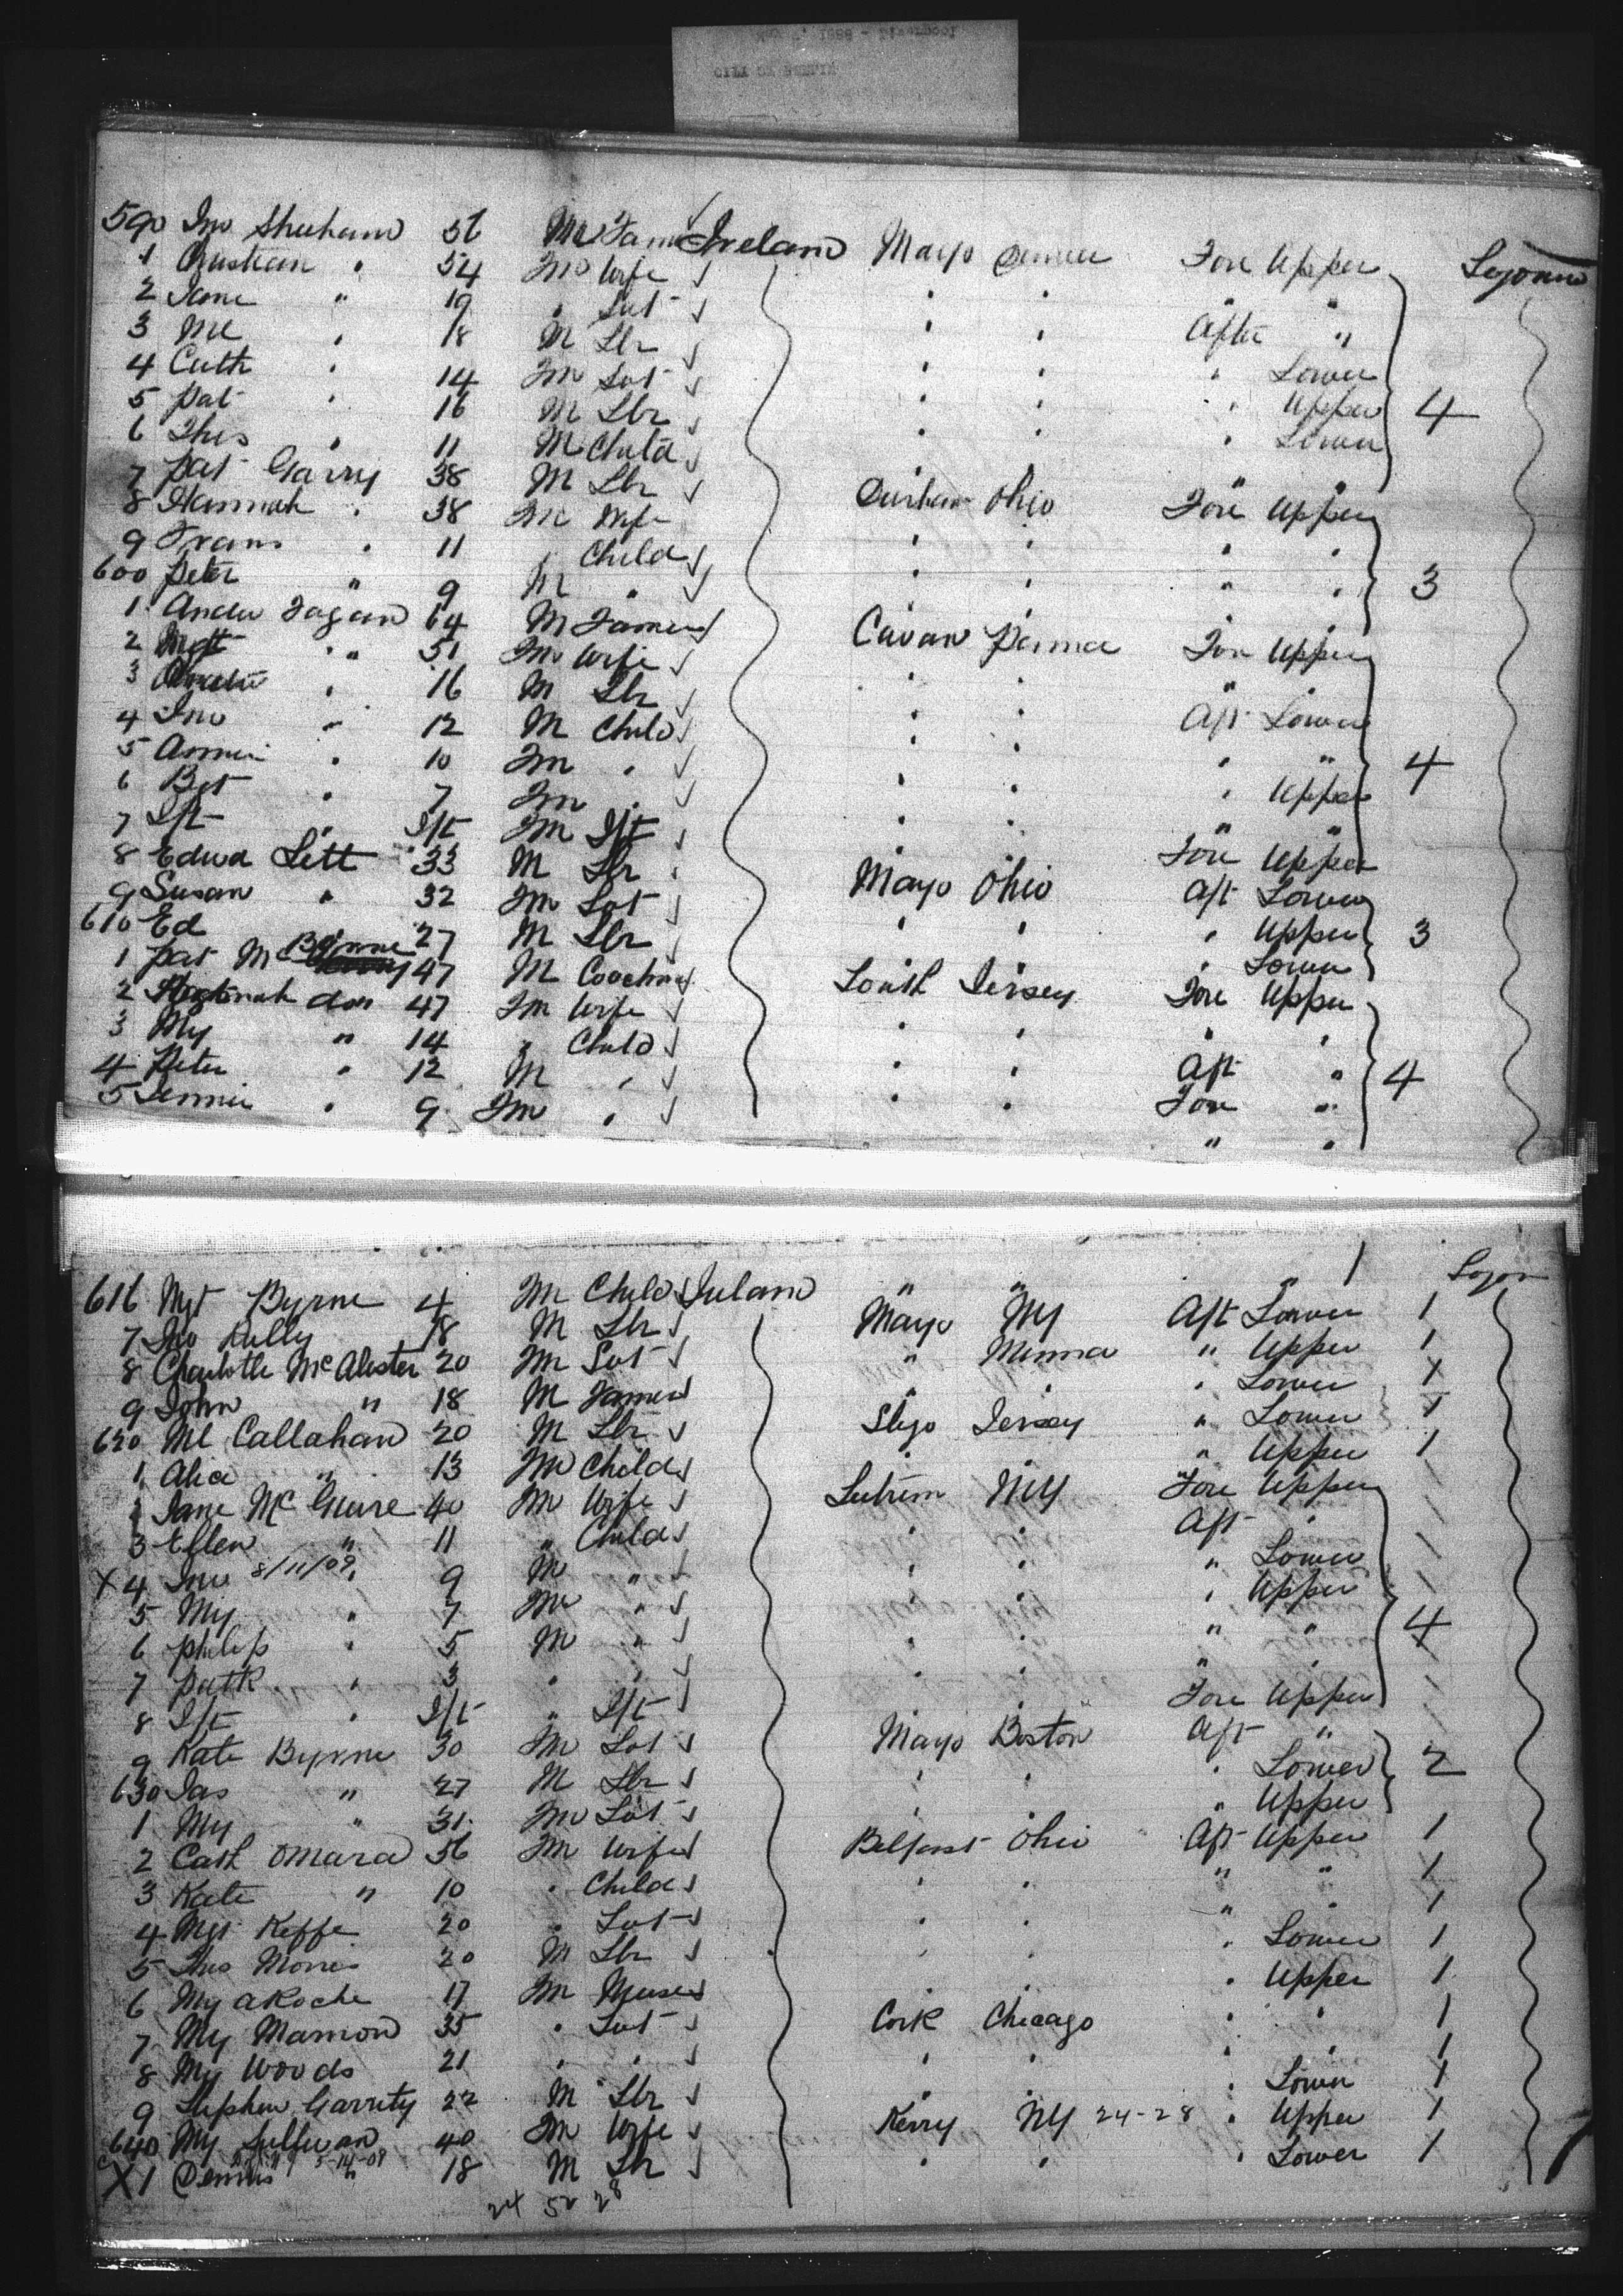 CITY OF BERLIN
590 Jno Sheehan 56 M Farm Ireland Mayo Denver Fore Upper
1 " 54 Fm Wife " " " "
2 Jane " 19 " Svt " " After "
3 Ml " 18 M Lbr " " " Lower
4 Cath " 14 Fm Svt " " " Upper 4
5 Pat " 16 M Lbr " " " Lower
6 Thos " 11 M Child " "
7 Pat Garry 38 M Lbr Durham Ohio Fore Upper
8 Hannah " 38 Fm Wife " " " "
9 Frans " 11 " Child " " " " 3
600 Peter " 9 M " " " " "
1 Andw Fagan 64 M Farmer Cavan Penna Fore Upper
2 Mgt " 51 Fm Wife " " " "
3 " 16 M Lbr " " Aft Lower
4 Jno " 12 M Child " " " "
5 Annie " 10 Fm " " " " Upper 4
6 Bgt " 7 Fm " " " " "
7 Ift " Ift Fm Ift " " Fore Upper
8 Edwd Lett 33 M Lbr Mayo Ohio Aft Lower
9 Susan " 32 Fm Svt " " " Upper 3
610 Ed 27 M Lbr " " " Lower
1 Pat Mc Byrne 47 M Coachman Louth Jersey Fore Upper
2 Hannah do 47 Fm Wife " " " "
3 My " 14 " Child " " Aft "
4 Peter " 12 M " " " Fore " 4
5 Jennie " 9 Fm " " "
616 Mgt Byrne 4 Fm Child Ireland " " " 1
7 Jno Kelly 18 M Lbr Mayo NY Aft Lower 1
8 Charlotte McAlister 20 Fm Svt " Minna " Upper 1
9 John " 18 M Farmer " " " Lower 1
620 Ml Callahan 20 M Lbr Sligo Jersey " Lower 1
1 Alice " 13 Fm Child " " " Upper 1
2 Jane McGuire 40 Fm Wife Leitrim NY Fore Upper
3 Ellen " 11 " Child " " Aft "
X 4 Jno 8/11/09 " 9 M " " " " Lower
5 My " 7 Fm " " " " Upper
6 Philip " 5 M " " " " " 4
7 Patk " 3 " " " " " "
8 Ift " Ift " Ift " Fore Upper
9 Kate Byrne 30 Fm Svt Mayo Boston Aft "
630 Jas " 27 M Lbr " " " Lower 2
1 My " 31 Fm Svt " " " Upper
2 Cath OMara 56 Fm Wife Belfast Ohio Aft Upper 1
3 Kate " 10 " Child " " " " 1
4 Mgt Keffe 20 " Svt " " " " 1
5 Thos Morris 20 M Lbr " " " Lower 1
6 My aRoche 17 Fm Nurse " " " Upper 1
7 My Mannon 35 " Svt Cork Chicago " " 1
8 My Woods 21 " " " " " " 1
9 Stephen Garrity 22 M Lbr " " " Lower 1
640 My Sullivan 40 Fm Wife Kerry NY 24-28 " Upper 1
X1 Dennis " 5-14-09 18 M Lbr " " " Lower 1
24 50 28